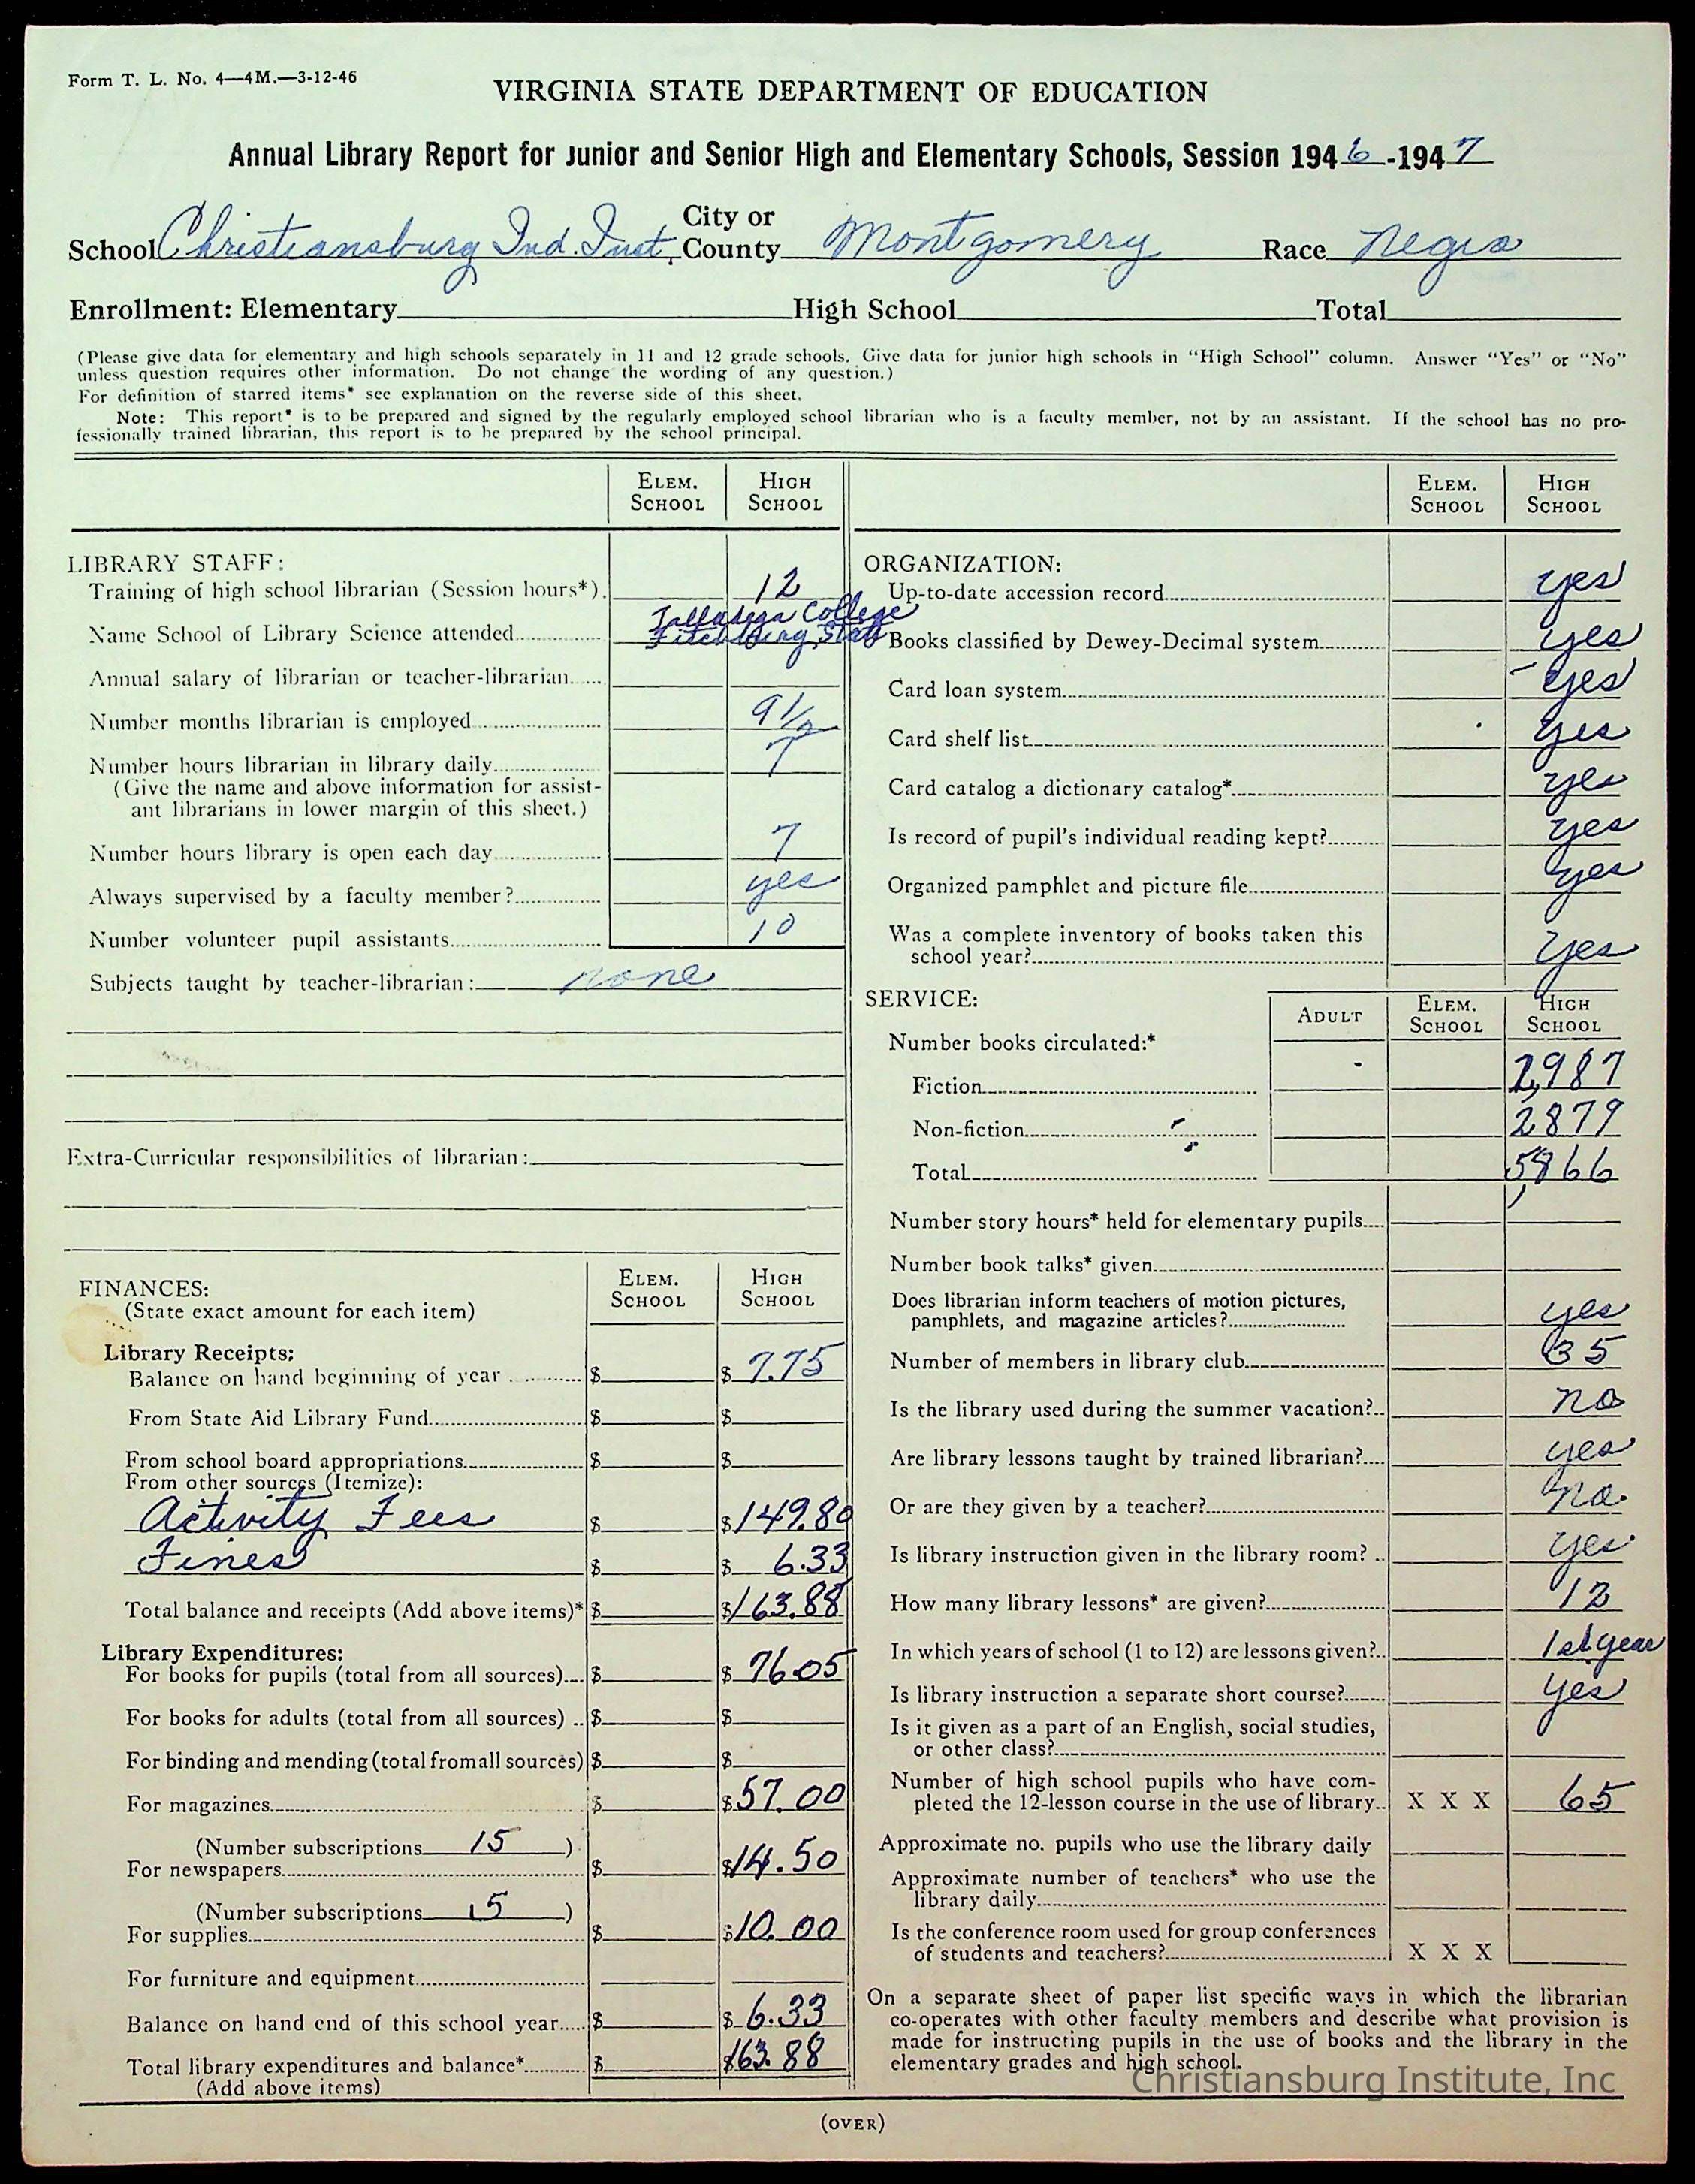 Form T. L. No. 4—4M.—3-12-46
VIRGINIA STATE DEPARTMENT OF EDUCATION
Annual Library Report for Junior and Senior High and Elementary Schools, Session 1946-1947
School Christiansburg Ind. Inst. City or County Montgomery Race Negro
Enrollment: Elementary High School Total
(Please give data for elementary and high schools separately in 11 and 12 grade schools. Give data for junior high schools in “High School” column. Answer “Yes” or “No”
unless question requires other information. Do not change the wording of any question.)
For definition of starred items* see explanation on the reverse side of this sheet.
Note: This report* is to be prepared and signed by the regularly employed school librarian who is a faculty member, not by an assistant. If the school has no pro-
fessionally trained librarian, this report is to be prepared by the school principal.
ELEM. SCHOOL HIGH SCHOOL
LIBRARY STAFF:
Training of high school librarian (Session hours*). 12
Name School of Library Science attended Talladega College
Fitchburg, State
Annual salary of librarian or teacher-librarian
Number months librarian is employed 9 1/2
Number hours librarian in library daily 7
(Give the name and above information for assist-
ant librarians in lower margin of this sheet.)
Number hours library is open each day 7
Always supervised by a faculty member? yes
Number volunteer pupil assistants 10
Subjects taught by teacher-librarian: none
Extra-Curricular responsibilities of librarian:
FINANCES: ELEM. SCHOOL HIGH SCHOOL
(State exact amount for each item)
Library Receipts:
Balance on hand beginning of year $ $ 7.75
From State Aid Library Fund $ $
From school board appropriations $ $
From other sources (Itemize):
Activity Fees $ $149.80
Fines $ $ 6.33
Total balance and receipts (Add above items)* $ $163.88
Library Expenditures:
For books for pupils (total from all sources) $ $ 76.05
For books for adults (total from all sources) $ $
For binding and mending (total from all sources) $ $
For magazines $ $57.00
(Number subscriptions 15 )
For newspapers $ $14.50
(Number subscriptions 5 )
For supplies $ $10.00
For furniture and equipment
Balance on hand end of this school year $ $ 6.33
Total library expenditures and balance* $ $163.88
(Add above items)
ELEM. SCHOOL HIGH SCHOOL
ORGANIZATION:
Up-to-date accession record yes
Books classified by Dewey-Decimal system yes
Card loan system yes
Card shelf list yes
Card catalog a dictionary catalog* yes
Is record of pupil's individual reading kept? yes
Organized pamphlet and picture file yes
Was a complete inventory of books taken this
school year? yes
SERVICE: ADULT ELEM. SCHOOL HIGH SCHOOL
Number books circulated:*
Fiction 2,987
Non-fiction 2879
Total 5,866
Number story hours* held for elementary pupils
Number book talks* given
Does librarian inform teachers of motion pictures,
pamphlets, and magazine articles? yes
Number of members in library club 35
Is the library used during the summer vacation? no
Are library lessons taught by trained librarian? yes
Or are they given by a teacher? no
Is library instruction given in the library room? yes
How many library lessons* are given? 12
In which years of school (1 to 12) are lessons given? 1st year
Is library instruction a separate short course? yes
Is it given as a part of an English, social studies,
or other class?
Number of high school pupils who have com-
pleted the 12-lesson course in the use of library X X X 65
Approximate no. pupils who use the library daily
Approximate number of teachers* who use the
library daily
Is the conference room used for group conferences
of students and teachers? X X X
On a separate sheet of paper list specific ways in which the librarian
co-operates with other faculty members and describe what provision is
made for instructing pupils in the use of books and the library in the
elementary grades and high school.
Christiansburg Institute, Inc
(OVER)